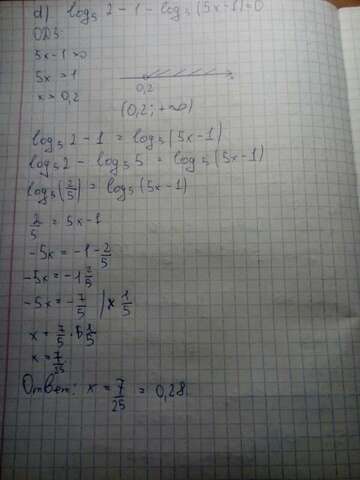 d) log₅ 2 - 1 - log₅ (5x-1)=0
ОДЗ
5x-1>0
5x > 1
x > 0,2
0,2 x
(0,2; +∞)
log₅ 2 - 1 = log₅ (5x-1)
log₅ 2 - log₅ 5 = log₅ (5x-1)
log₅ (2/5) = log₅ (5x-1)
2/5 = 5x-1
-5x = -1 - 2/5
-5x = -1 2/5
-5x = -7/5 | x 1/5
x = 7/5 · 1/5
x = 7/25
Ответ: x = 7/25 = 0,28.